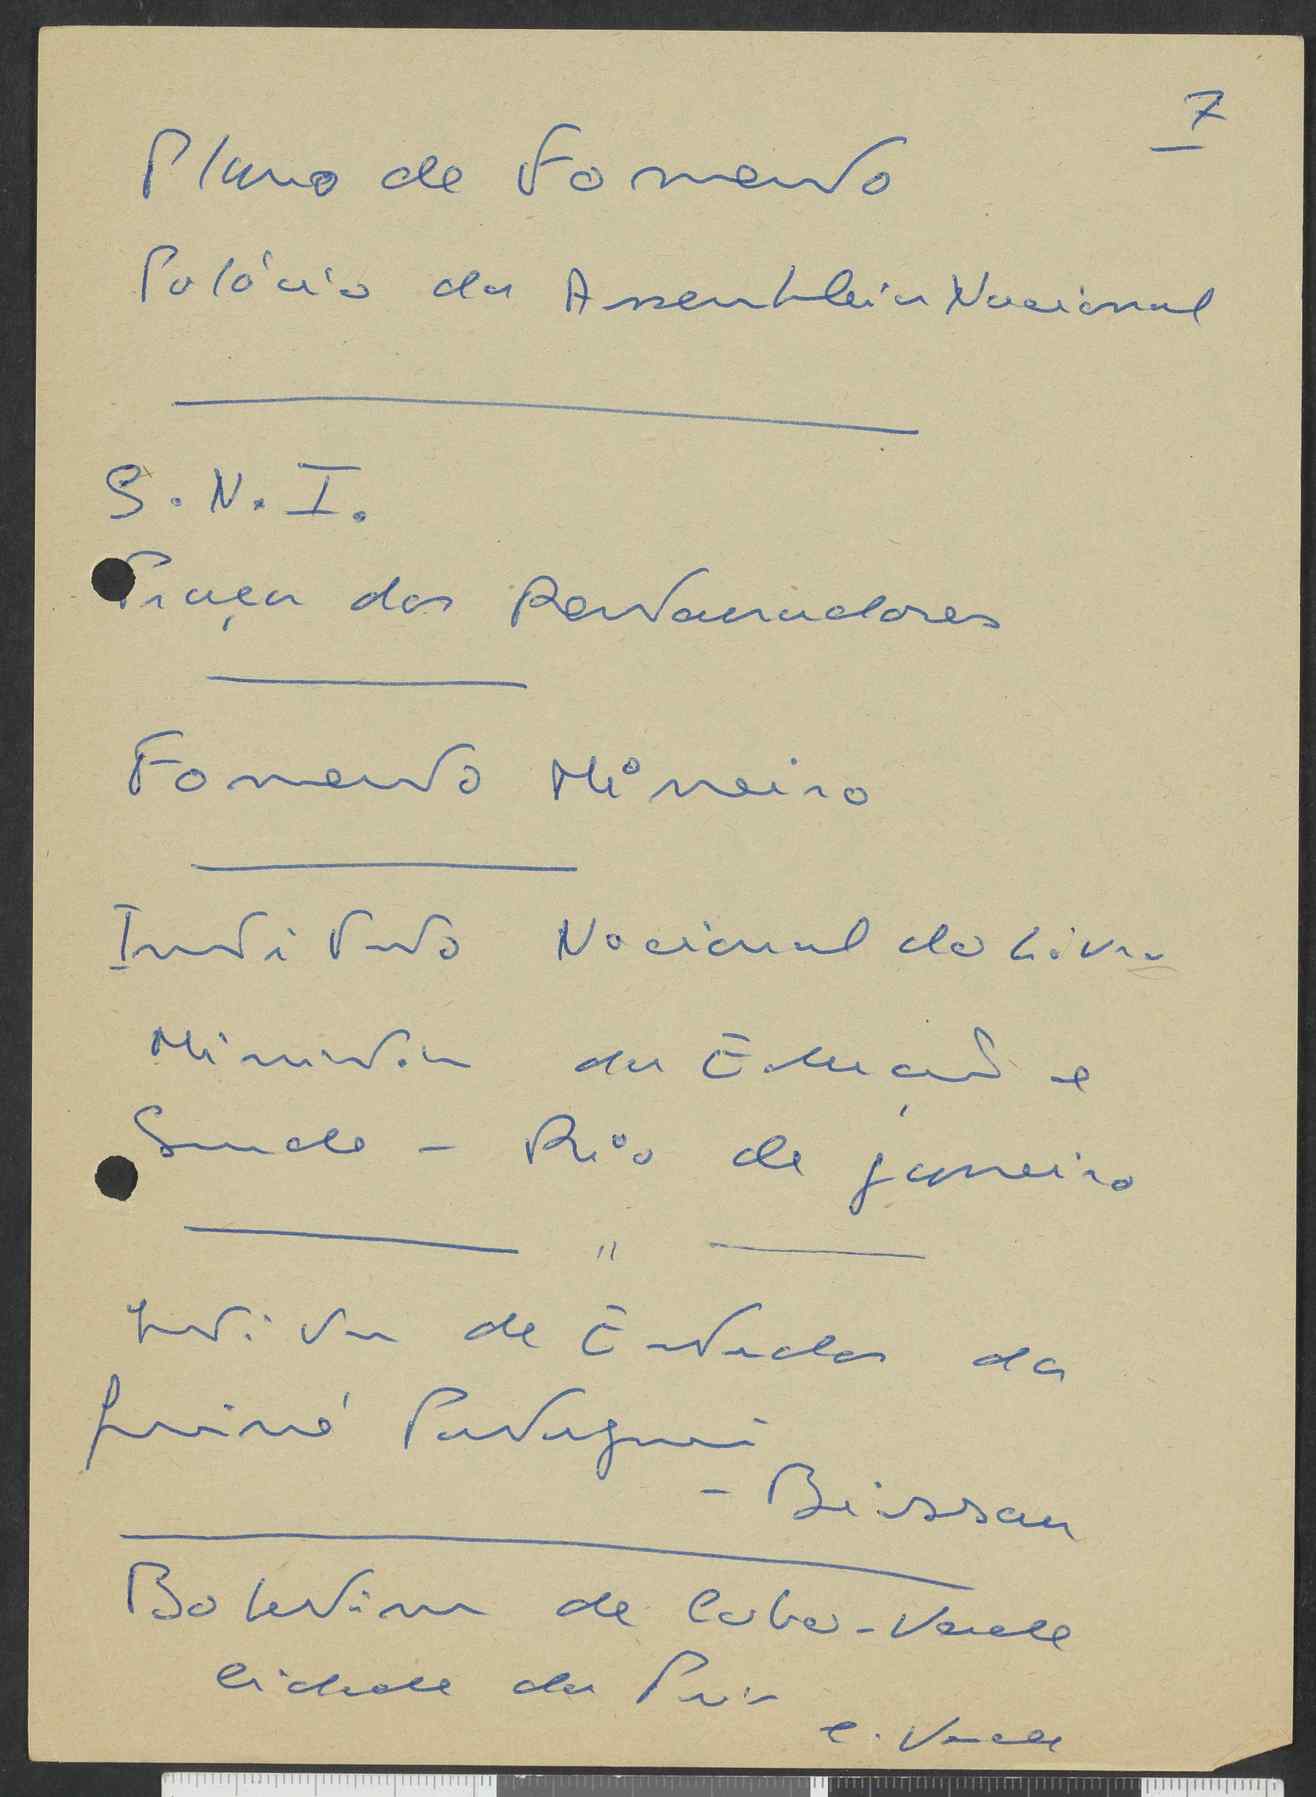 7
Plano de Fomento
Palácio da Assembleia Nacional
S. N. I.
Praça dos Restauradores
Fomento Mineiro
Instituto Nacional do Livro
da Educação e
Saude - Rio de janeiro
"
de Estudos da
guiné Portuguesa
- Bissau
Boletim de Cabo-Verde
Cidade da Praia
C. Verde